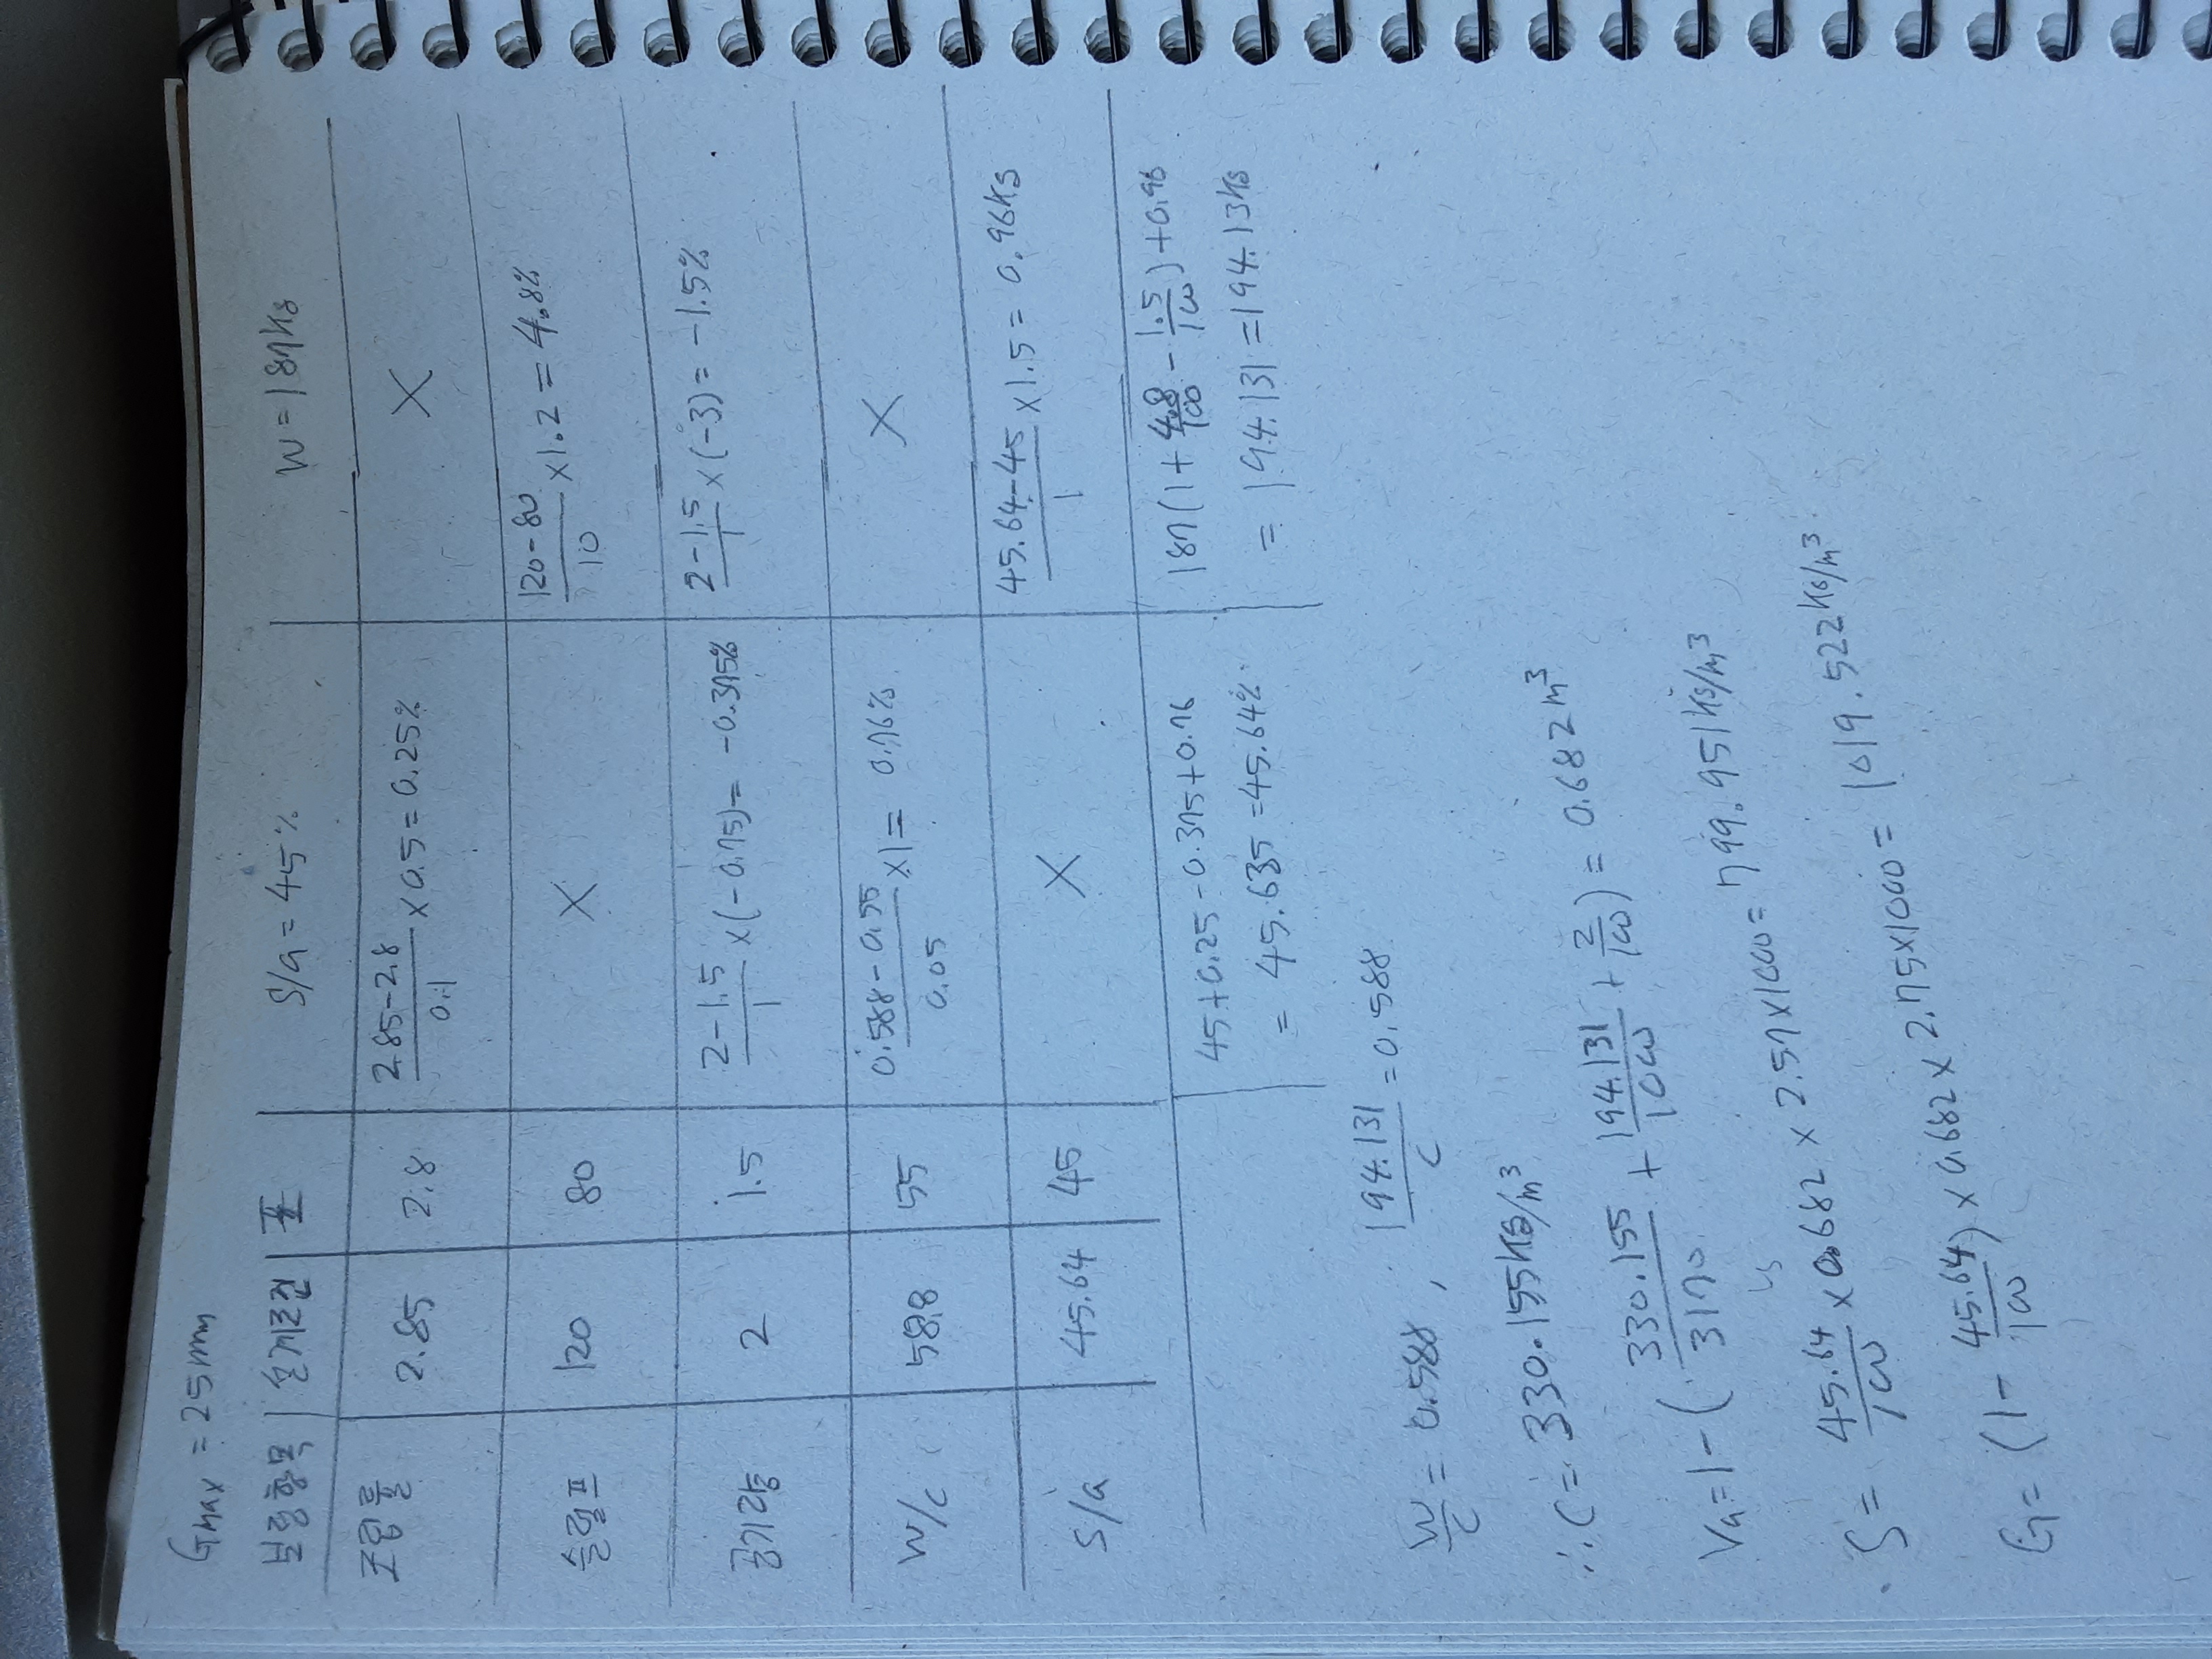 Gmax = 25mm
보정항목 | 설계조건 | 표 S/a = 45% W = 187kg
조립률 2.85 2.8 2.85-2.8/0.1 × 0.5 = 0.25% X
슬럼프 120 80 X 120-80/10 × 1.2 = 4.8%
공기량 2 1.5 2-1.5/1 × (-0.75) = -0.375% 2-1.5/1 × (-3) = -1.5%
W/C 58.8 55 0.588-0.55/0.05 × 1 = 0.76% X
S/a 45.64 45 X 45.64-45/1 × 1.5 = 0.96kg
45+0.25-0.375+0.76 187(1+4.8/100-1.5/100)+0.96
= 45.635 = 45.64% = 194.131 = 194.13kg
W/C = 0.588 , 194.131/C = 0.588
∴ C = 330.155kg/m³
Va = 1-(330.155/3170 + 194.131/1000 + 2/100) = 0.682m³
S = 45.64/100 × 0.682 × 2.57×1000 = 799.951kg/m³
G = (1-45.64/100) × 0.682 × 2.75×1000 = 1019.522kg/m³